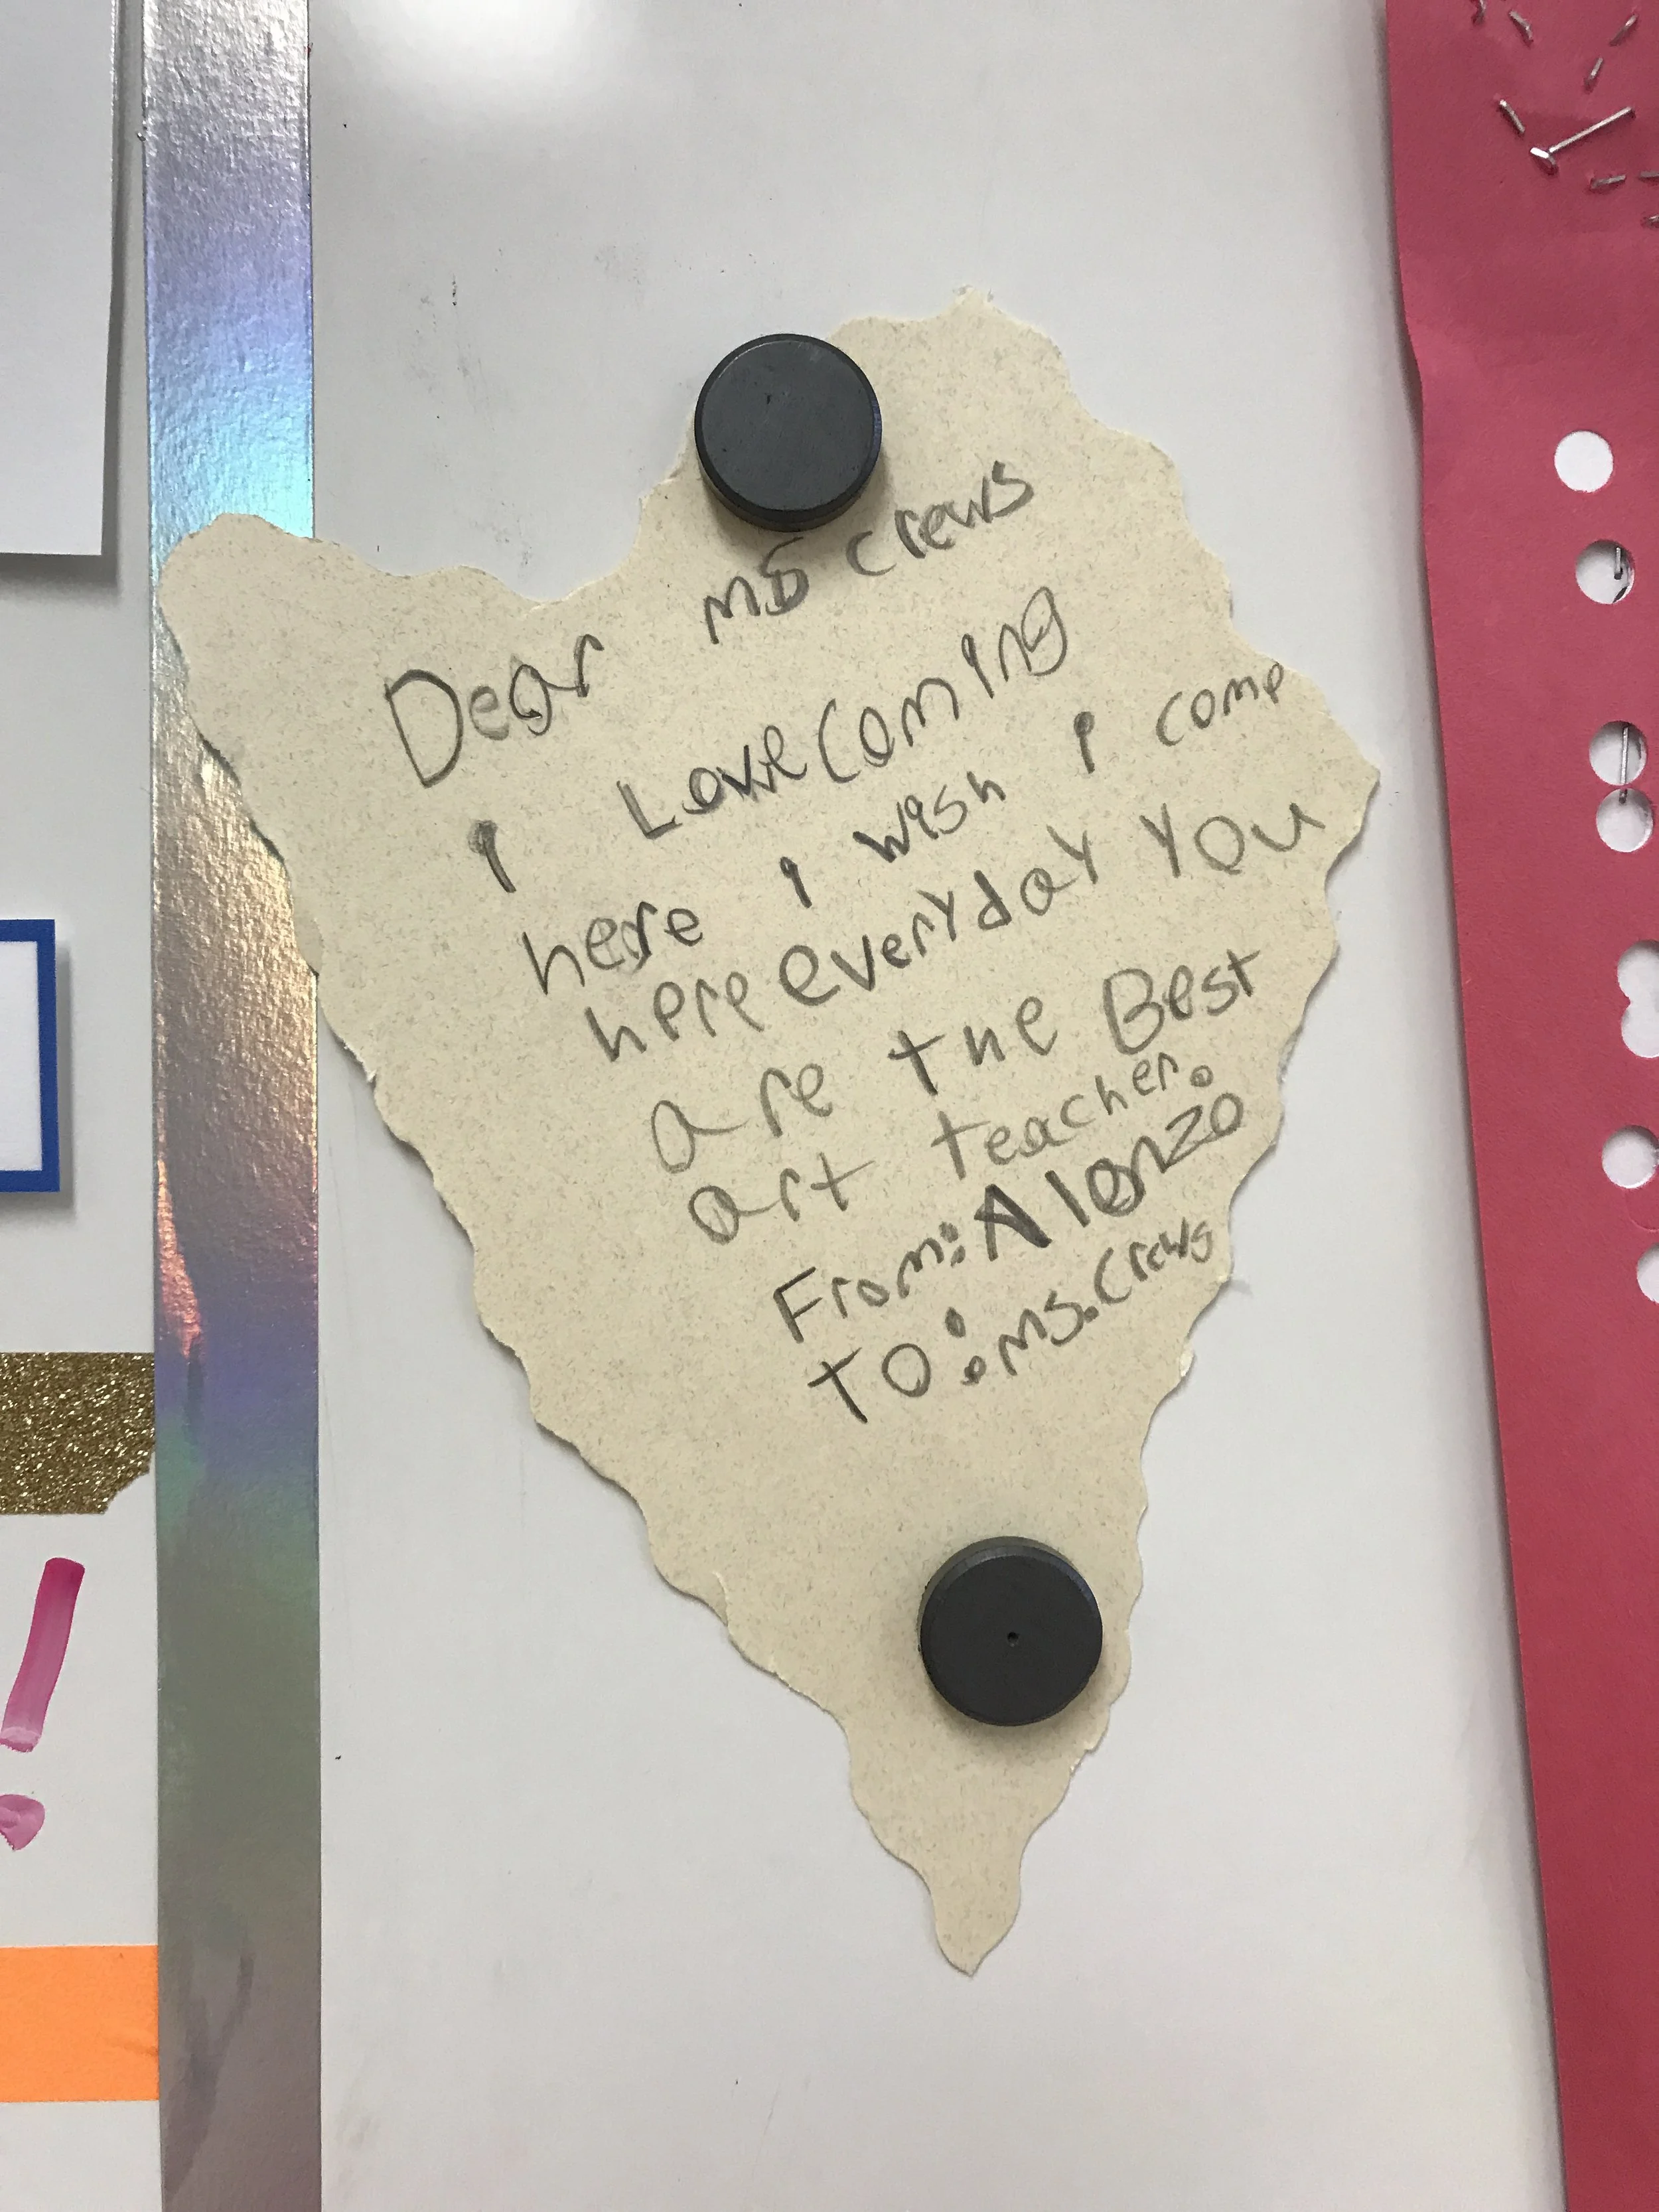 Dear ms crews
I Love coming
here I wish I come
here everyday You
are the Best
art teacher.
From: Alonzo
To: ms. Crews
!